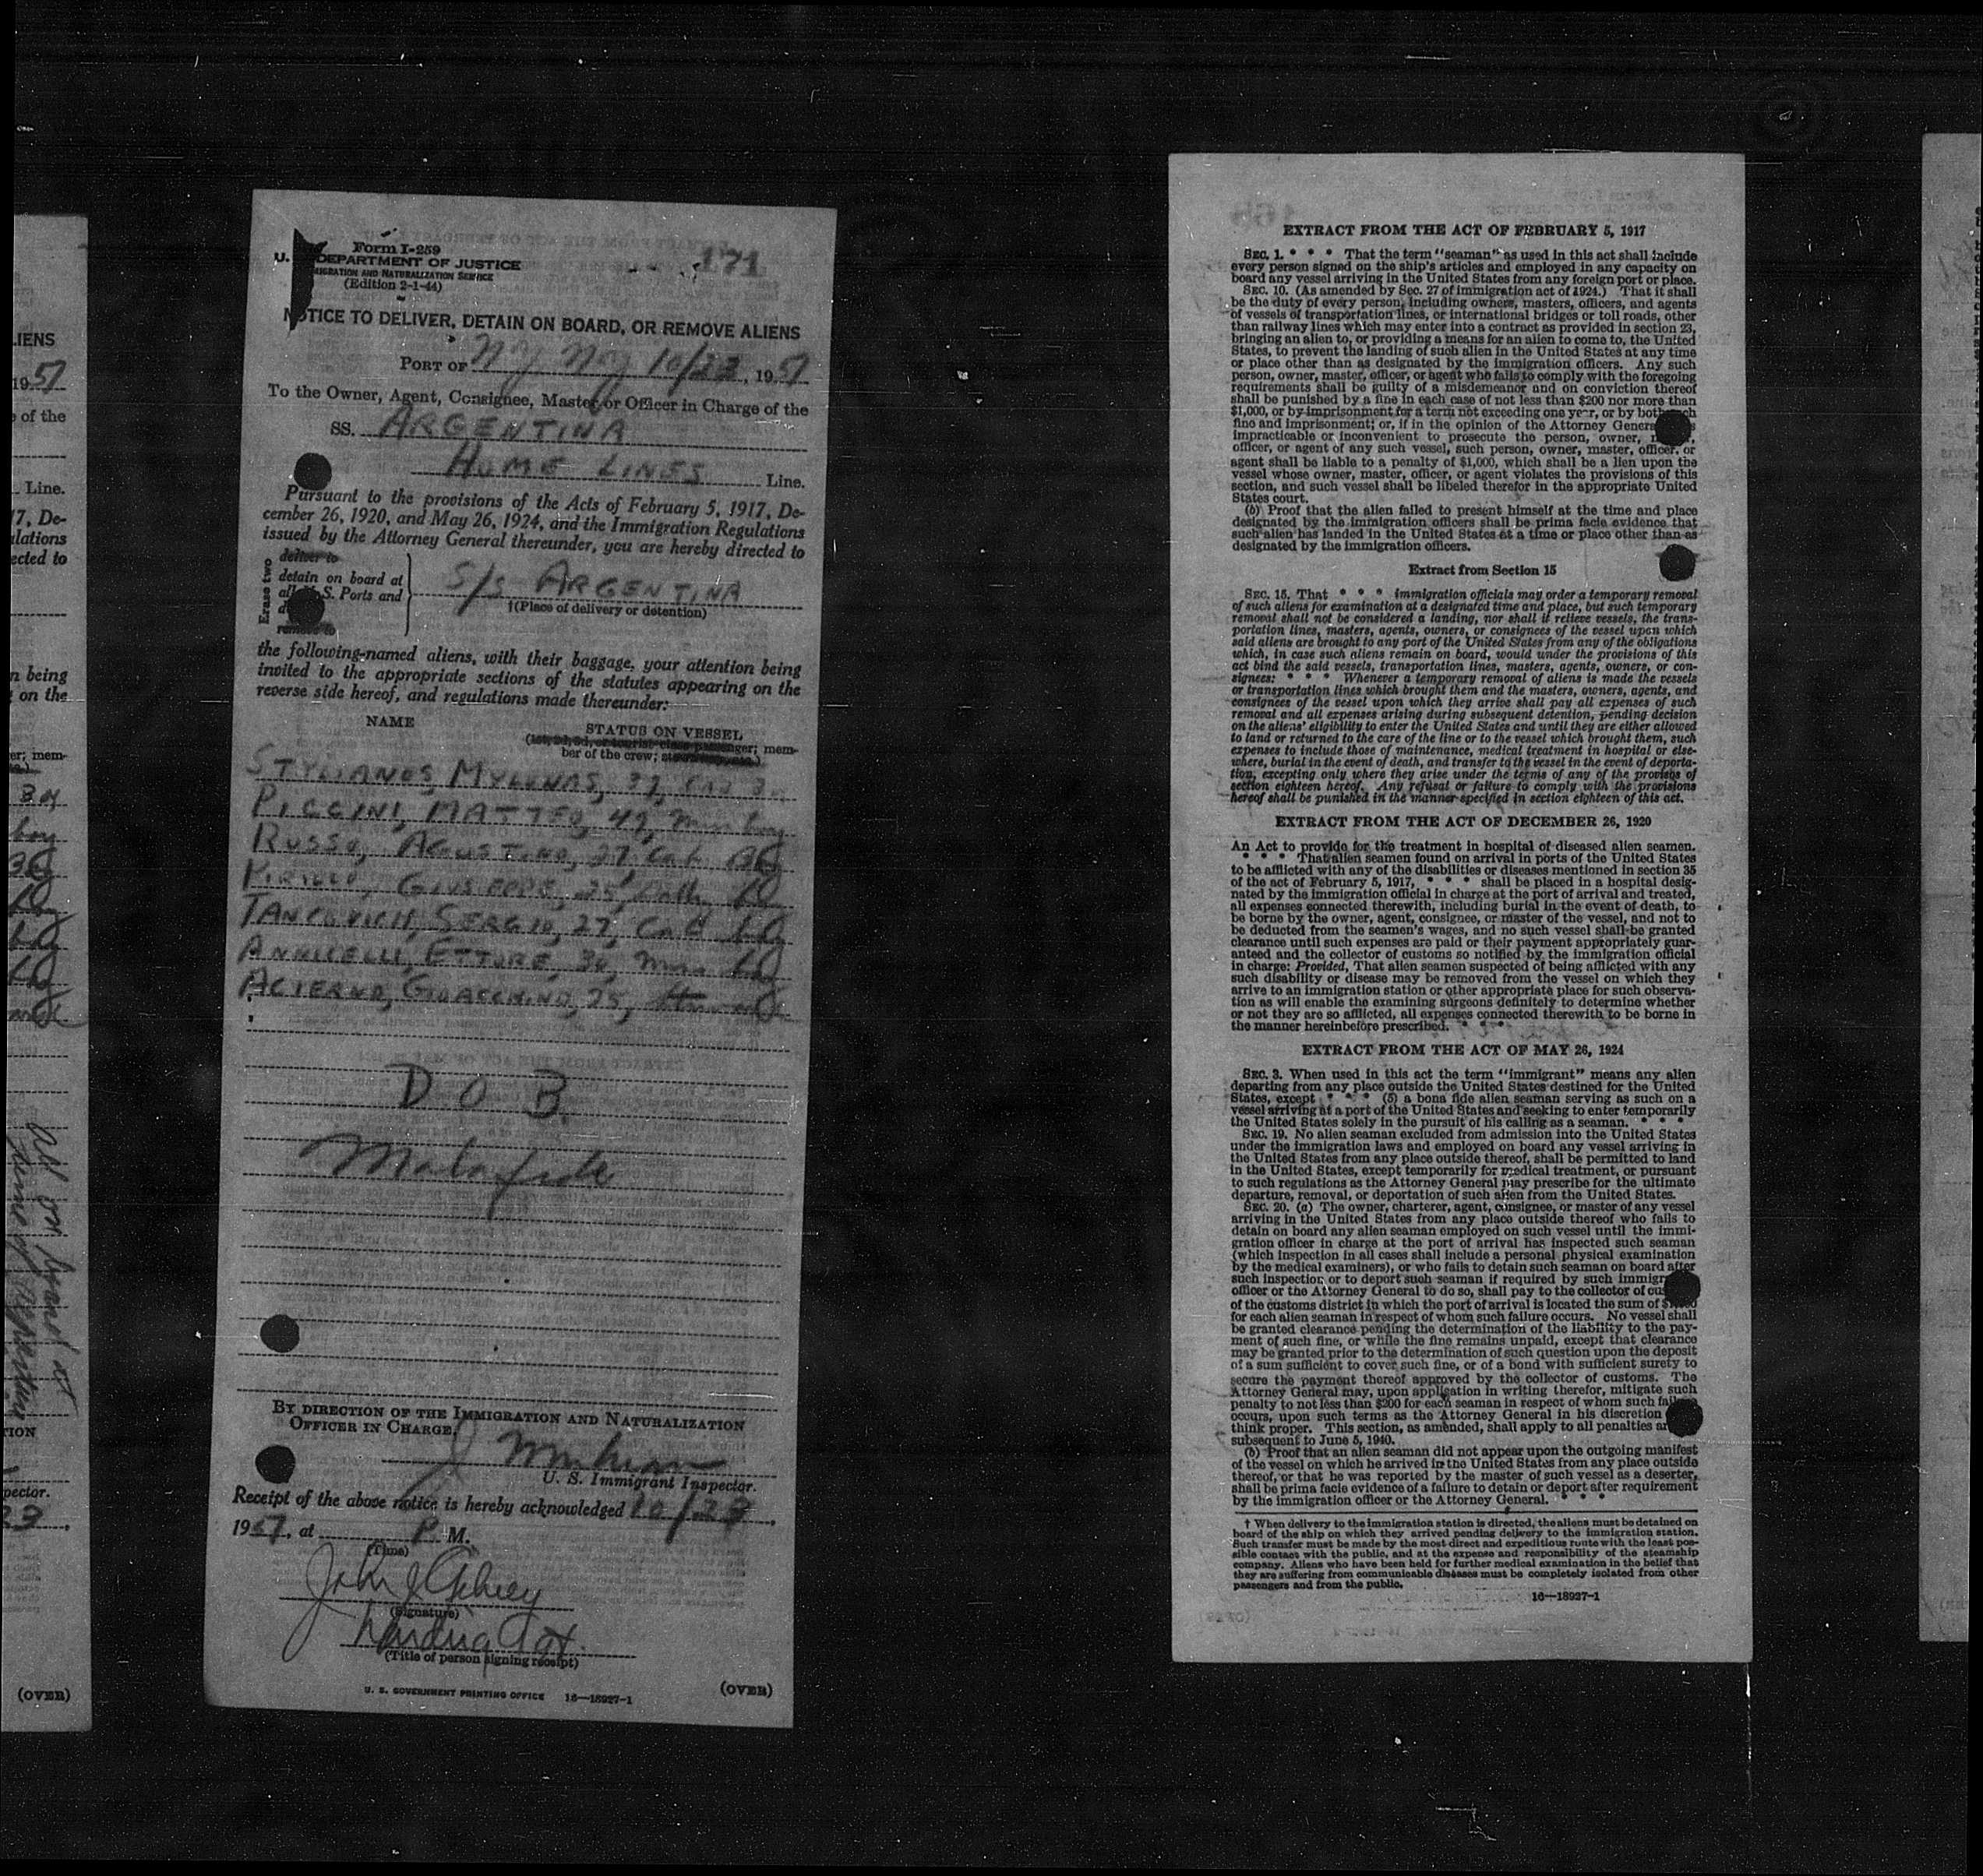 LIENS
1951
of the
Line.
7, De-
ulations
ected to
n being
on the
er; mem-
3d
boy
on board
TION
pector.
23,
(OVER)
Form I-259
U. DEPARTMENT OF JUSTICE
MIGRATION AND NATURALIZATION SERVICE
(Edition 2-1-44)
171
NOTICE TO DELIVER, DETAIN ON BOARD, OR REMOVE ALIENS
PORT OF NY NY 10/23, 1951
To the Owner, Agent, Consignee, Master, or Officer in Charge of the
SS. ARGENTINA
HOME LINES Line.
Pursuant to the provisions of the Acts of February 5, 1917, De-
cember 26, 1920, and May 26, 1924, and the Immigration Regulations
issued by the Attorney General thereunder, you are hereby directed to
Erase two
deliver to
detain on board at
all U.S. Ports and
d
remove to
S/S ARGENTINA
†(Place of delivery or detention)
the following-named aliens, with their baggage, your attention being
invited to the appropriate sections of the statutes appearing on the
reverse side hereof, and regulations made thereunder:
NAME
STATUS ON VESSEL
(1st, 2d, 3d, or tourist-class passenger; mem-
ber of the crew;
STYLIANOS MYLONAS, 37,
PIGGINI, MATTEO, 49, mess boy
RUSSO, AGOSTINO, 27, Cab
PIRILLO, GIUSEPPE, 25,
TANCOVICH, SERGIO, 27, Cab
ANNICELLI, ETTORE, 30, mess boy
ACIERNO, GIOACCHINO, 25,
D O B.
Malafide
BY DIRECTION OF THE IMMIGRATION AND NATURALIZATION
OFFICER IN CHARGE,
U. S. Immigrant Inspector.
Receipt of the above notice is hereby acknowledged 10/23,
1951, at P. M.
(Time)
John J
(Signature)
(Title of person signing receipt)
U. S. GOVERNMENT PRINTING OFFICE 16—18927-1
(OVER)
EXTRACT FROM THE ACT OF FEBRUARY 5, 1917
SEC. 1. * * * That the term "seaman" as used in this act shall include
every person signed on the ship's articles and employed in any capacity on
board any vessel arriving in the United States from any foreign port or place.
SEC. 10. (As amended by Sec. 27 of immigration act of 1924.) That it shall
be the duty of every person, including owners, masters, officers, and agents
of vessels of transportation lines, or international bridges or toll roads, other
than railway lines which may enter into a contract as provided in section 23,
bringing an alien to, or providing a means for an alien to come to, the United
States, to prevent the landing of such alien in the United States at any time
or place other than as designated by the immigration officers. Any such
person, owner, master, officer, or agent who fails to comply with the foregoing
requirements shall be guilty of a misdemeanor and on conviction thereof
shall be punished by a fine in each case of not less than $200 nor more than
$1,000, or by imprisonment for a term not exceeding one year, or by both such
fine and imprisonment; or, if in the opinion of the Attorney General
impracticable or inconvenient to prosecute the person, owner,
officer, or agent of any such vessel, such person, owner, master, officer, or
agent shall be liable to a penalty of $1,000, which shall be a lien upon the
vessel whose owner, master, officer, or agent violates the provisions of this
section, and such vessel shall be libeled therefor in the appropriate United
States court.
(b) Proof that the alien failed to present himself at the time and place
designated by the immigration officers shall be prima facie evidence that
such alien has landed in the United States at a time or place other than as
designated by the immigration officers.
Extract from Section 15
SEC. 15. That * * * immigration officials may order a temporary removal
of such aliens for examination at a designated time and place, but such temporary
removal shall not be considered a landing, nor shall it relieve vessels, the trans-
portation lines, masters, agents, owners, or consignees of the vessel upon which
said aliens are brought to any port of the United States from any of the obligations
which, in case such aliens remain on board, would under the provisions of this
act bind the said vessels, transportation lines, masters, agents, owners, or con-
signees: * * * Whenever a temporary removal of aliens is made the vessels
or transportation lines which brought them and the masters, owners, agents, and
consignees of the vessel upon which they arrive shall pay all expenses of such
removal and all expenses arising during subsequent detention, pending decision
on the aliens' eligibility to enter the United States and until they are either allowed
to land or returned to the care of the line or to the vessel which brought them, such
expenses to include those of maintenance, medical treatment in hospital or else-
where, burial in the event of death, and transfer to the vessel in the event of deporta-
tion, excepting only where they arise under the terms of any of the provisos of
section eighteen hereof. Any refusal or failure to comply with the provisions
hereof shall be punished in the manner specified in section eighteen of this act.
EXTRACT FROM THE ACT OF DECEMBER 26, 1920
An Act to provide for the treatment in hospital of diseased alien seamen.
* * * That alien seamen found on arrival in ports of the United States
to be afflicted with any of the disabilities or diseases mentioned in section 35
of the act of February 5, 1917, * * * shall be placed in a hospital desig-
nated by the immigration official in charge at the port of arrival and treated,
all expenses connected therewith, including burial in the event of death, to
be borne by the owner, agent, consignee, or master of the vessel, and not to
be deducted from the seamen's wages, and no such vessel shall be granted
clearance until such expenses are paid or their payment appropriately guar-
anteed and the collector of customs so notified by the immigration official
in charge: Provided, That alien seamen suspected of being afflicted with any
such disability or disease may be removed from the vessel on which they
arrive to an immigration station or other appropriate place for such observa-
tion as will enable the examining surgeons definitely to determine whether
or not they are so afflicted, all expenses connected therewith to be borne in
the manner hereinbefore prescribed. * * *
EXTRACT FROM THE ACT OF MAY 26, 1924
SEC. 3. When used in this act the term "immigrant" means any alien
departing from any place outside the United States destined for the United
States, except * * * (5) a bona fide alien seaman serving as such on a
vessel arriving at a port of the United States and seeking to enter temporarily
the United States solely in the pursuit of his calling as a seaman. * * *
SEC. 19. No alien seaman excluded from admission into the United States
under the immigration laws and employed on board any vessel arriving in
the United States from any place outside thereof, shall be permitted to land
in the United States, except temporarily for medical treatment, or pursuant
to such regulations as the Attorney General may prescribe for the ultimate
departure, removal, or deportation of such alien from the United States.
SEC. 20. (a) The owner, charterer, agent, consignee, or master of any vessel
arriving in the United States from any place outside thereof who fails to
detain on board any alien seaman employed on such vessel until the immi-
gration officer in charge at the port of arrival has inspected such seaman
(which inspection in all cases shall include a personal physical examination
by the medical examiners), or who fails to detain such seaman on board after
such inspection or to deport such seaman if required by such immigr
officer or the Attorney General to do so, shall pay to the collector of cus
of the customs district in which the port of arrival is located the sum of
for each alien seaman in respect of whom such failure occurs. No vessel shall
be granted clearance pending the determination of the liability to the pay-
ment of such fine, or while the fine remains unpaid, except that clearance
may be granted prior to the determination of such question upon the deposit
of a sum sufficient to cover such fine, or of a bond with sufficient surety to
secure the payment thereof approved by the collector of customs. The
Attorney General may, upon application in writing therefor, mitigate such
penalty to not less than $200 for each seaman in respect of whom such failure
occurs, upon such terms as the Attorney General in his discretion
think proper. This section, as amended, shall apply to all penalties ar
subsequent to June 5, 1940.
(b) Proof that an alien seaman did not appear upon the outgoing manifest
of the vessel on which he arrived in the United States from any place outside
thereof, or that he was reported by the master of such vessel as a deserter,
shall be prima facie evidence of a failure to detain or deport after requirement
by the immigration officer or the Attorney General. * * *
† When delivery to the immigration station is directed, the aliens must be detained on
board of the ship on which they arrived pending delivery to the immigration station.
Such transfer must be made by the most direct and expeditious route with the least pos-
sible contact with the public, and at the expense and responsibility of the steamship
company. Aliens who have been held for further medical examination in the belief that
they are suffering from communicable diseases must be completely isolated from other
passengers and from the public.
16—18927-1